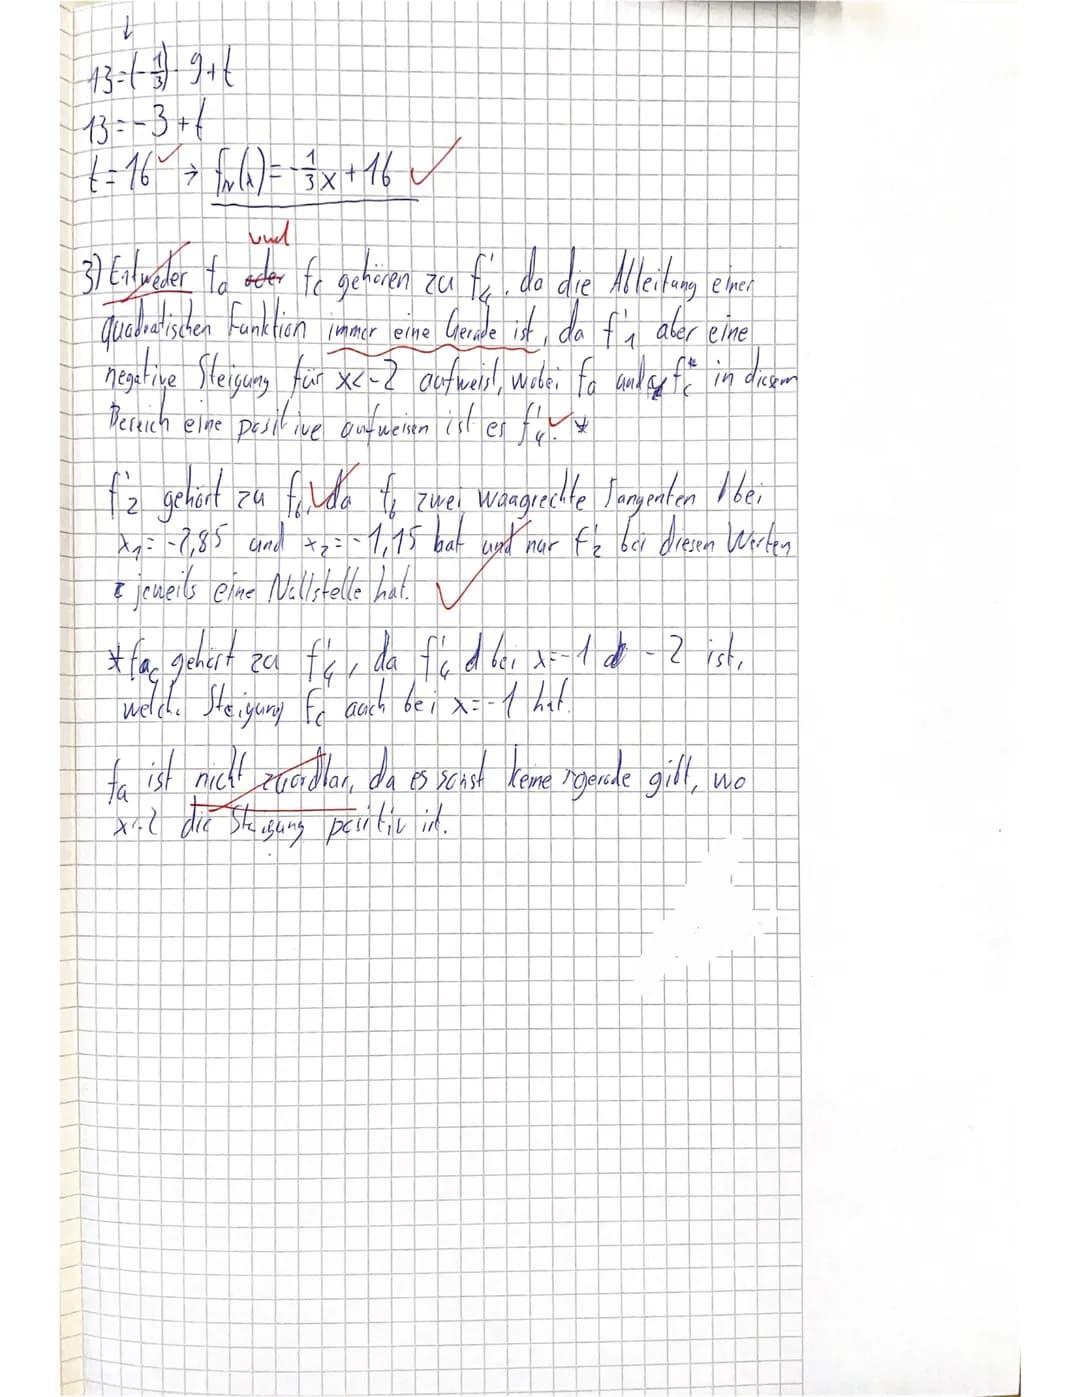 ↓
13=(-1/3)·9+t
13=-3+t
t=16 ✓ → f_N(x)=-1/3x+16 ✓
und
3) Entweder fa oder fc gehören zu f'4, da die Ableitung einer
quadratischen Funktion immer eine Gerade ist, da f'1 aber eine
negative Steigung für x<-2 aufweist, wobei fa und fc* in diesem
Bereich eine positive aufweisen ist es f'4. ✓ *
f'2 gehört zu fb, da fb zwei waagrechte Tangenten bei
x1=-2,85 und x2=-1,15 hat und nur f'2 bei diesen Werten
jeweils eine Nullstelle hat. ✓
* fc gehört zu f'4, da f'4 bei x=-1 -2 ist,
welche Steigung fc auch bei x=-1 hat.
fa ist nicht, da es sonst keine gerade gibt, wo
die Steigung positiv ist.